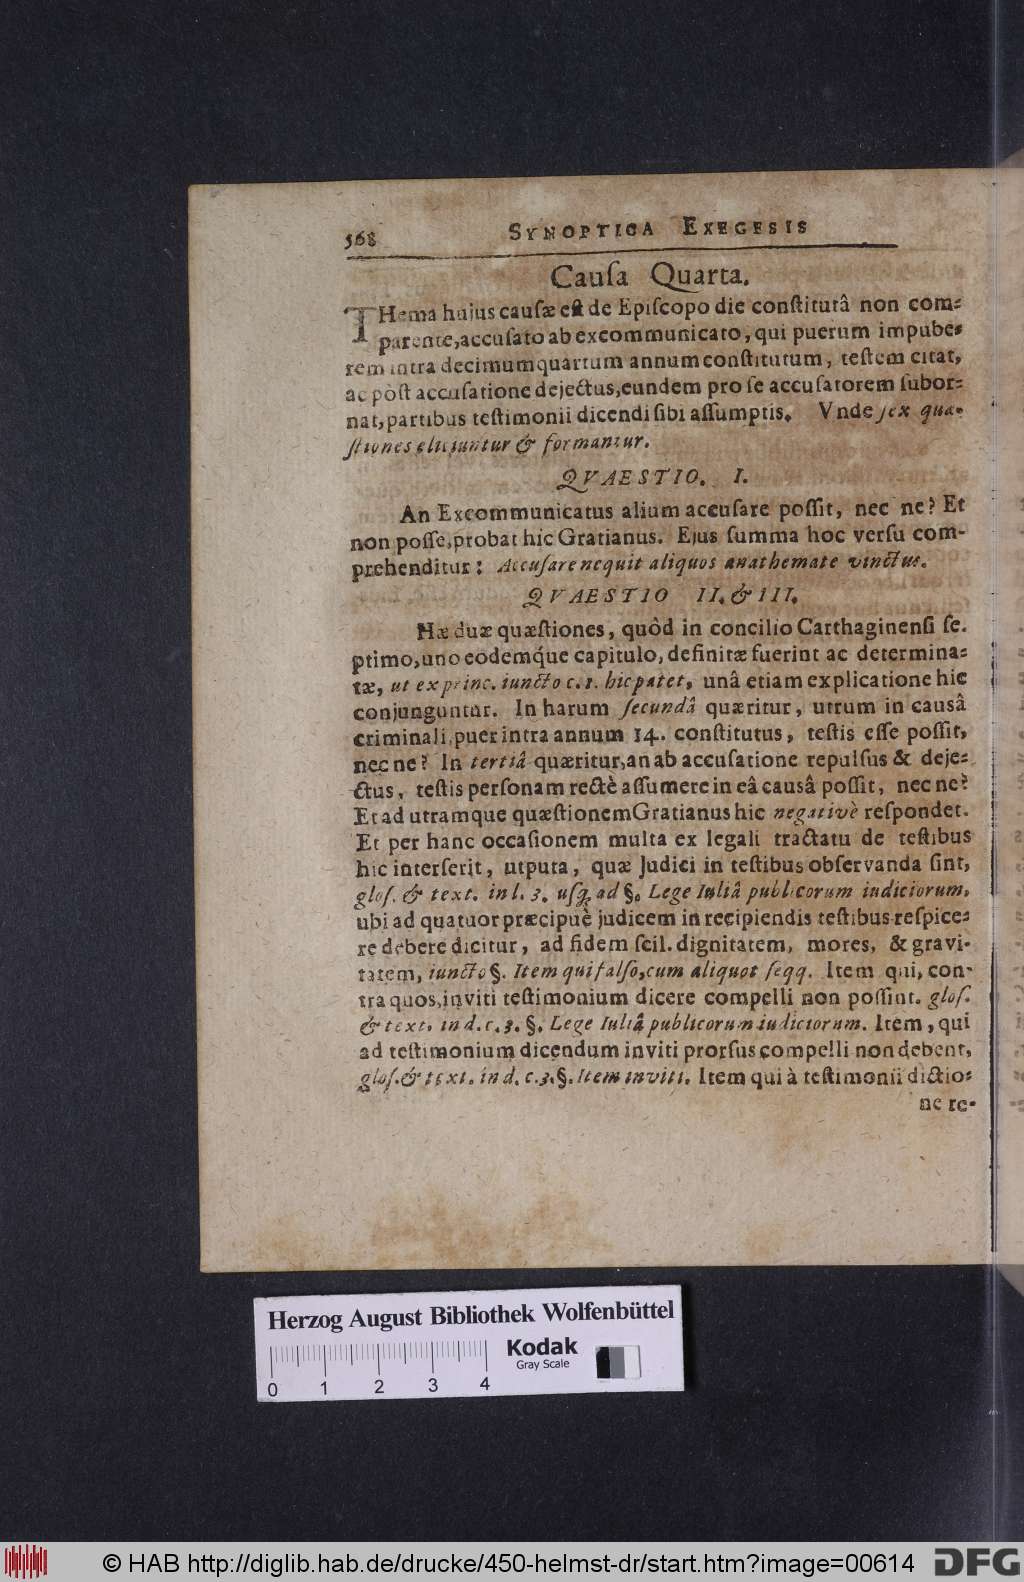 568 SYNOPTICA EXEGESIS
Cauſa Quarta.
THema hujus cauſæ eſt de Epiſcopo die conſtitutâ non com-
parente, accuſato ab excommunicato, qui puerum impube-
rem intra decimumquartum annum conſtitutum, teſtem citat,
ac pòſt accuſatione dejectus, eundem pro ſe accuſatorem ſubor-
nat, partibus teſtimonii dicendi ſibi aſſumptis. Vnde ſex quæ-
ſtiones eliciuntur & formantur.
QVAESTIO. I.
An Excommunicatus alium accuſare poſſit, nec ne? Et
non poſſe, probat hic Gratianus. Ejus ſumma hoc verſu com-
prehenditur: Accuſare nequit aliquos anathemate vinctus.
QVAESTIO II. & III.
Hæ duæ quæſtiones, quòd in concilio Carthaginenſi ſe-
ptimo, uno eodemq́ue capitulo, definitæ fuerint ac determina-
tæ, ut ex princ. iuncto c. 1. hic patet, unâ etiam explicatione hic
conjunguntur. In harum ſecundâ quæritur, utrum in causâ
criminali, puer intra annum 14. conſtitutus, teſtis eſſe poſſit,
nec ne? In tertiâ quæritur, an ab accuſatione repulſus & deje-
ctus, teſtis perſonam rectè aſſumere in eâ causâ poſſit, nec ne?
Et ad utramque quæſtionem Gratianus hic negativè reſpondet.
Et per hanc occaſionem multa ex legali tractatu de teſtibus
hic interſerit, utputa, quæ Judici in teſtibus obſervanda ſint,
gloſ. & text. in l. 3. uſq; ad §. Lege Iuliâ publicorum iudiciorum,
ubi ad quatuor præcipuè judicem in recipiendis teſtibus reſpice-
re debere dicitur, ad fidem ſcil. dignitatem, mores, & gravi-
tatem, iuncto §. Item qui falſo, cum aliquot ſeqq. Item qui, con-
tra quos, inviti teſtimonium dicere compelli non poſſint. gloſ.
& text. in d. c. 3. §. Lege Iuliâ publicorum iudiciorum. Item, qui
ad teſtimonium dicendum inviti prorſus compelli non debent,
gloſ. & text. in d. c. 3. §. Item inviti. Item qui à teſtimonii dictio-
ne re-
Herzog August Bibliothek Wolfenbüttel
Kodak
Gray Scale
0 1 2 3 4
© HAB http://diglib.hab.de/drucke/450-helmst-dr/start.htm?image=00614 DFG